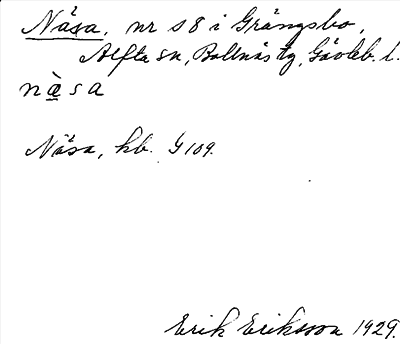 Näsa, nr s 8 i Grängsbo,
Alfta sn, Bollnäs tg, Gävleb. l.
nä̀sa
Näsa, kb. G 109.
Erik Eriksson 1929.